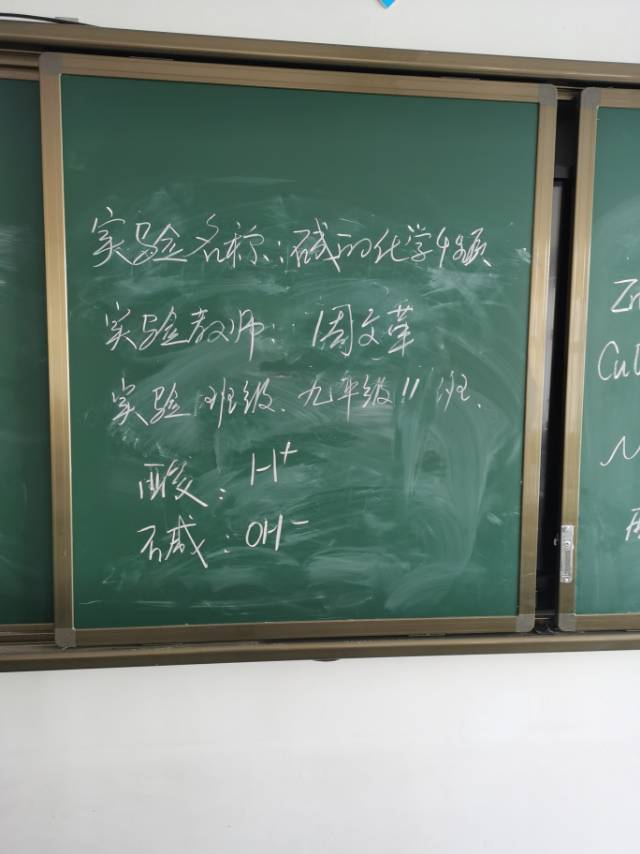 实验名称:碱的化学性质
实验教师: 周文革
实验班级、九年级11班、
酸: H⁺
碱: OH⁻
Zn
Cu